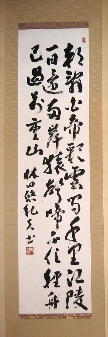 朝辞白帝彩雲間千里江陵
一日還両岸猿聲啼不住軽舟
已過万重山